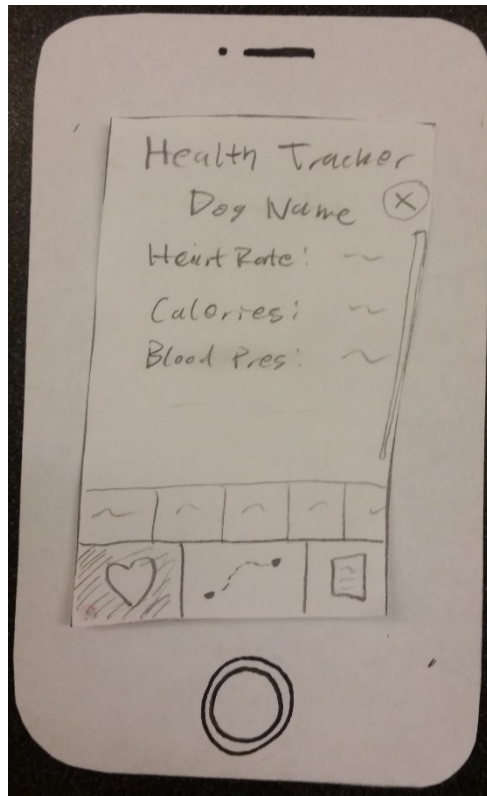 Health Tracker
Dog Name X
Heart Rate:
Calories:
Blood Pres: